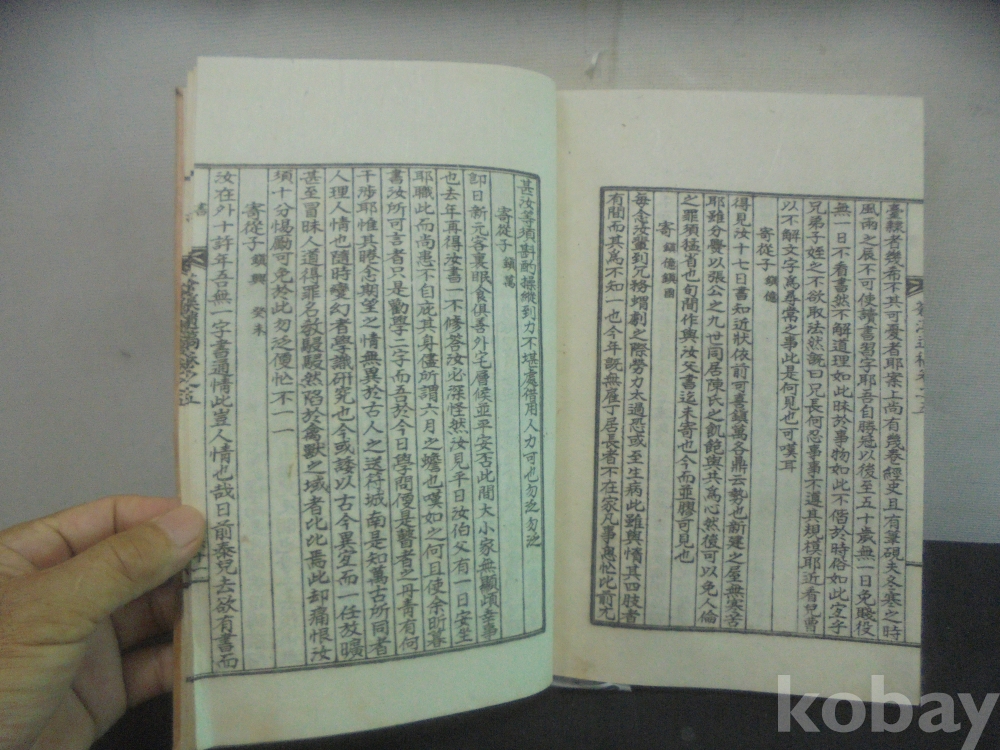 臺隸者幾希不其可憂者耶案上尚有幾卷經史且有筆硯夫冬寒之時
風雨之辰不可使讀書習字耶吾自勝冠以後至五十歲無一日免賤役
無一日不看書然不解道理如此昧於事物如此不偕於時俗如此定字
兄弟子姪之不欲取法然旣曰兄長何忍事事不遵其規模耶近看兒曹
以不解文字爲尋常之事此是何見也可嘆耳
寄從子 鎭億
得見汝十七日書知近狀依前可喜鎭萬各鼎云勢也新建之屋無寒苦
耶雖分爨以張公之九世同居陳氏之飢飽與共爲心然後可以免人倫
之罪須猛省也旬間作與汝父書迄未寄也今而並膠可見也
寄 鎭億鎭國
每念汝輩到冗務絅劇之際勞力太過恐或至生病此雖與惰其四肢者
有間而其爲不知一也今年旣無雁丁居長者不在家凡事悤忙比前尤
甚汝等須斟酌操縱到力不堪處借用人力可也勿泛勿泛
寄從子 鎭萬
卽日新元客裏眠食俱善外宅層候並平安否此間大小家無顯頉幸事
也去年再得汝書一不修答汝必深怪然汝見平日汝伯父有一日安坐
耶職此而尚患不自庇其身僅所謂六月之蟾也嘆如之何且使余昕暮
書汝所可言者只是勸學二字而吾於今日學問便是瞽者之丹靑有何
干涉耶惟其睠念期望之情無異於古人之送符城南是知萬古所同者
人理人情也隨時變幻者學識研究也今或諉以古今異宜而一任放曠
甚至冒昧人道得罪名敎駸駸然陷於禽獸之域者比比焉此却痛恨汝
須十分惕勵可免於此勿泛便忙不一
寄從子 鎭興 癸未
汝在外十許年吾無一字書通情此豈人情也哉日前泰兒去欲有書而
書
kobay